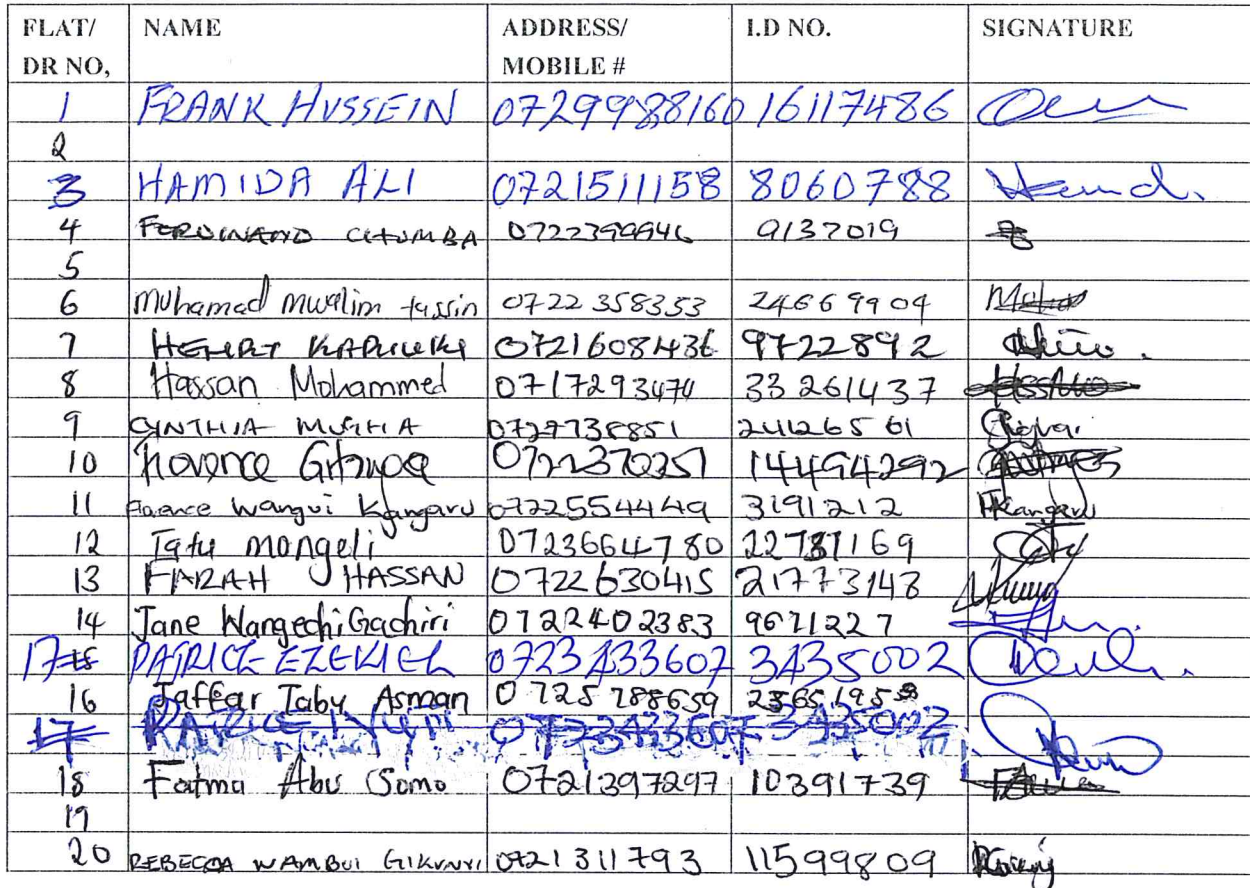 FLAT/ NAME ADDRESS/ I.D NO. SIGNATURE
DR NO, MOBILE #
1 FRANK HUSSEIN 0729988160 16117486
2
3 HAMIDA ALI 0721511158 8060788 Hamid.
4 FERDINAND CHUMBA 0722399946 9137019
5
6 Muhamad Mwalim tassin 0722358353 24669904
7 HENRY KARIUKI 0721608436 9722892
8 Hassan Mohammed 0717293474 33261437 Hassan
9 CYNTHIA 0727738851 24126561
10 Florence 0722370351 14494292
11 Florence Wangui Kangaru 0722554449 3191212 FKangaru
12 Tatu mongeli 0723664780 22781169
13 FARAH HASSAN 0722630415 21773143
14 Jane Wangechi Gachiri 0722402383 9671227
17 PATRICK EZEKIEL 0723433607 3435002
16 Jaffar Tabu Asman 0725788659 23651958
17 0723433607 3435002
18 Fatma Abu Somo 0721397297 10391739
19
20 REBECCA WAMBUI GIKUNYI 0721311793 11599809